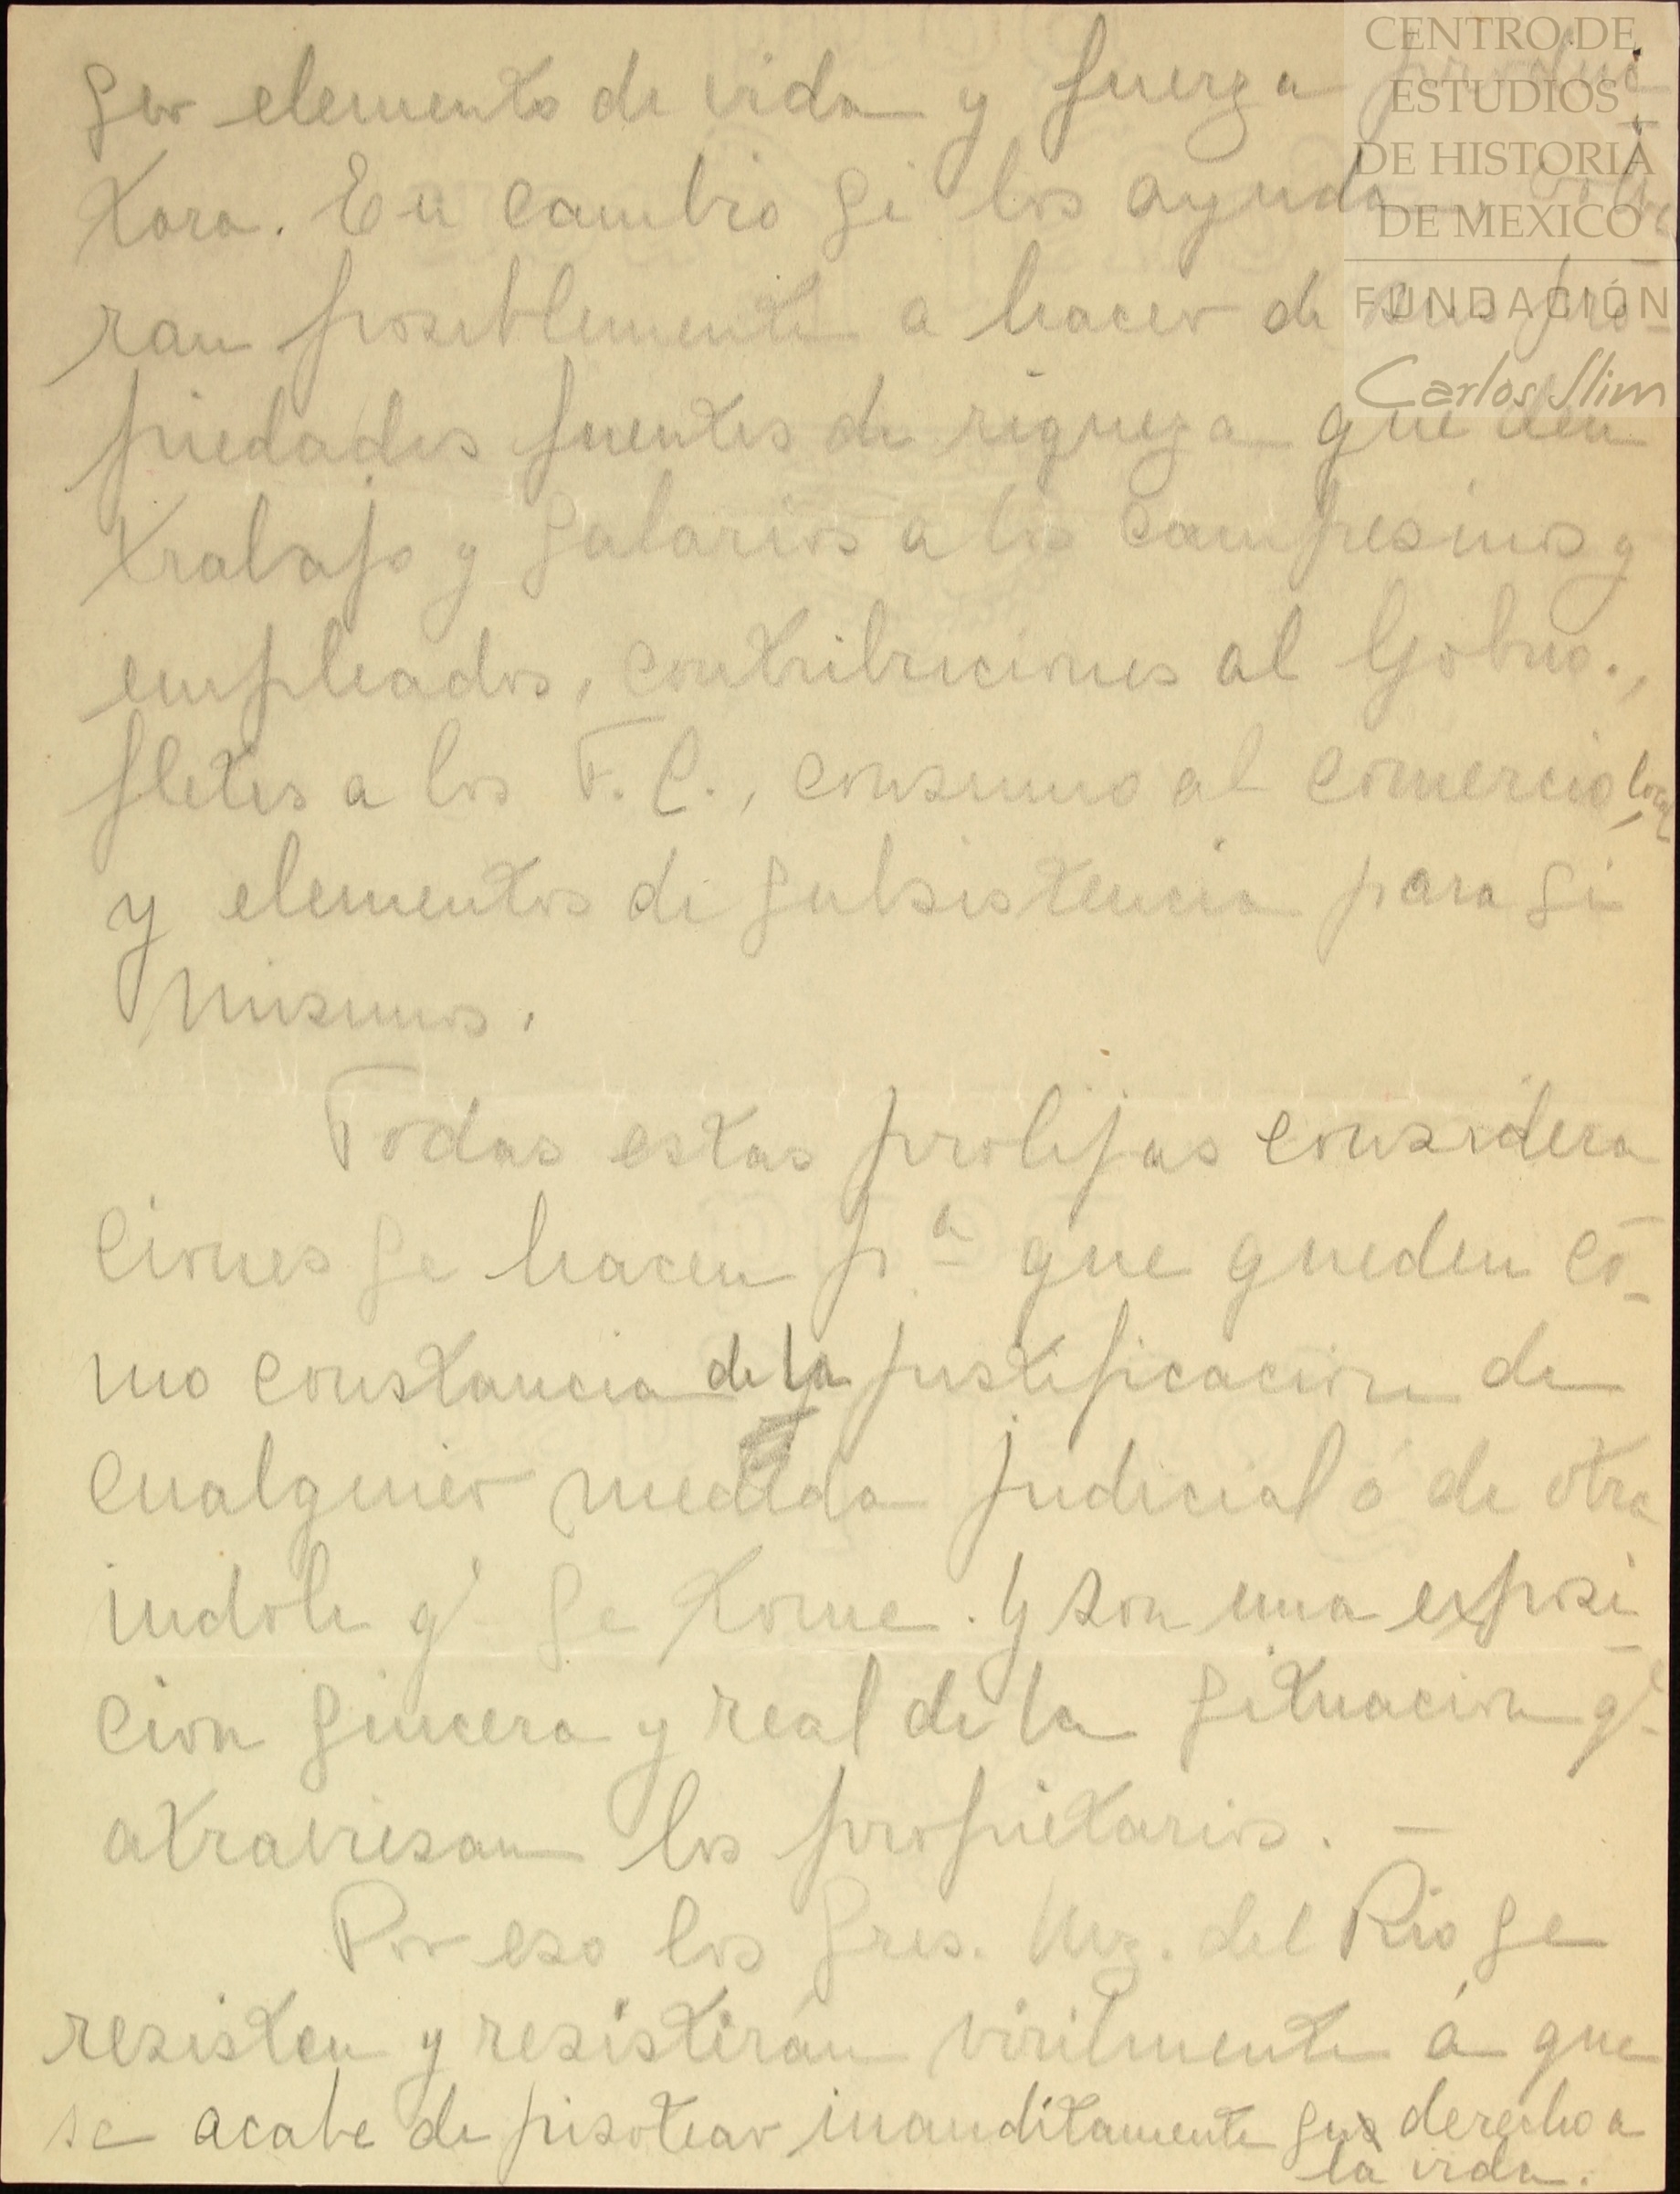 ser elemento de vida y fuerza produc
tora. En cambio si los ayudan, volve
ran posiblemente a hacer de sus pro-
piedades fuentes de riqueza que den
trabajo y salarios a los campesinos y
empleados, contribuciones al Gobno.,
fletes a los F. C., consumo al comercio local,
y elementos de subsistencia para si
mismos.
Todas estas prolijas considera
ciones se hacen pª que queden co-
mo constancia de la justificacion de
cualquier medida judicial o de otra
indole qe se tome. Y son una exposi-
cion sincera y real de la situacion qe
atraviesan los propietarios. —
Por eso los Sres. Mz. del Rio se
resisten y resistirán virilmente á que
se acabe de pisotear inauditamente sus derecho a
la vida.
CENTRO DE
ESTUDIOS
DE HISTORIA
DE MEXICO
FUNDACIÓN
Carlos Slim